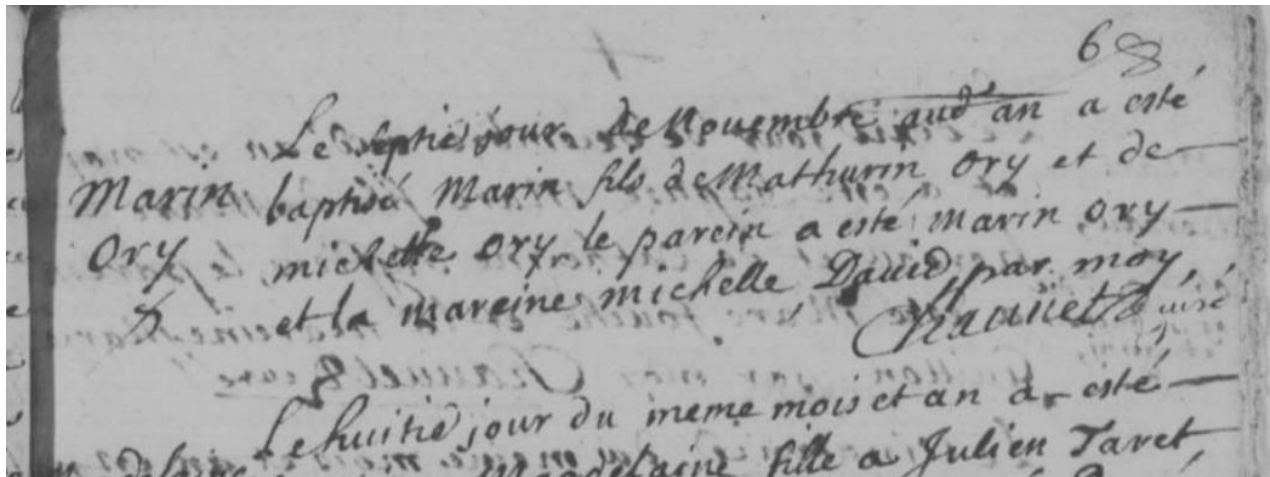 68
Le septie jour de Nouembre aud an a esté
Marin baptisé Marin fils de Mathurin Ory et de
Ory michelle Ory le parein a esté marin Ory
et la mareine michelle Dauid par moy,
curé
Le huitie jour du meme mois et an a esté
Magdelaine fille a Julien Taret